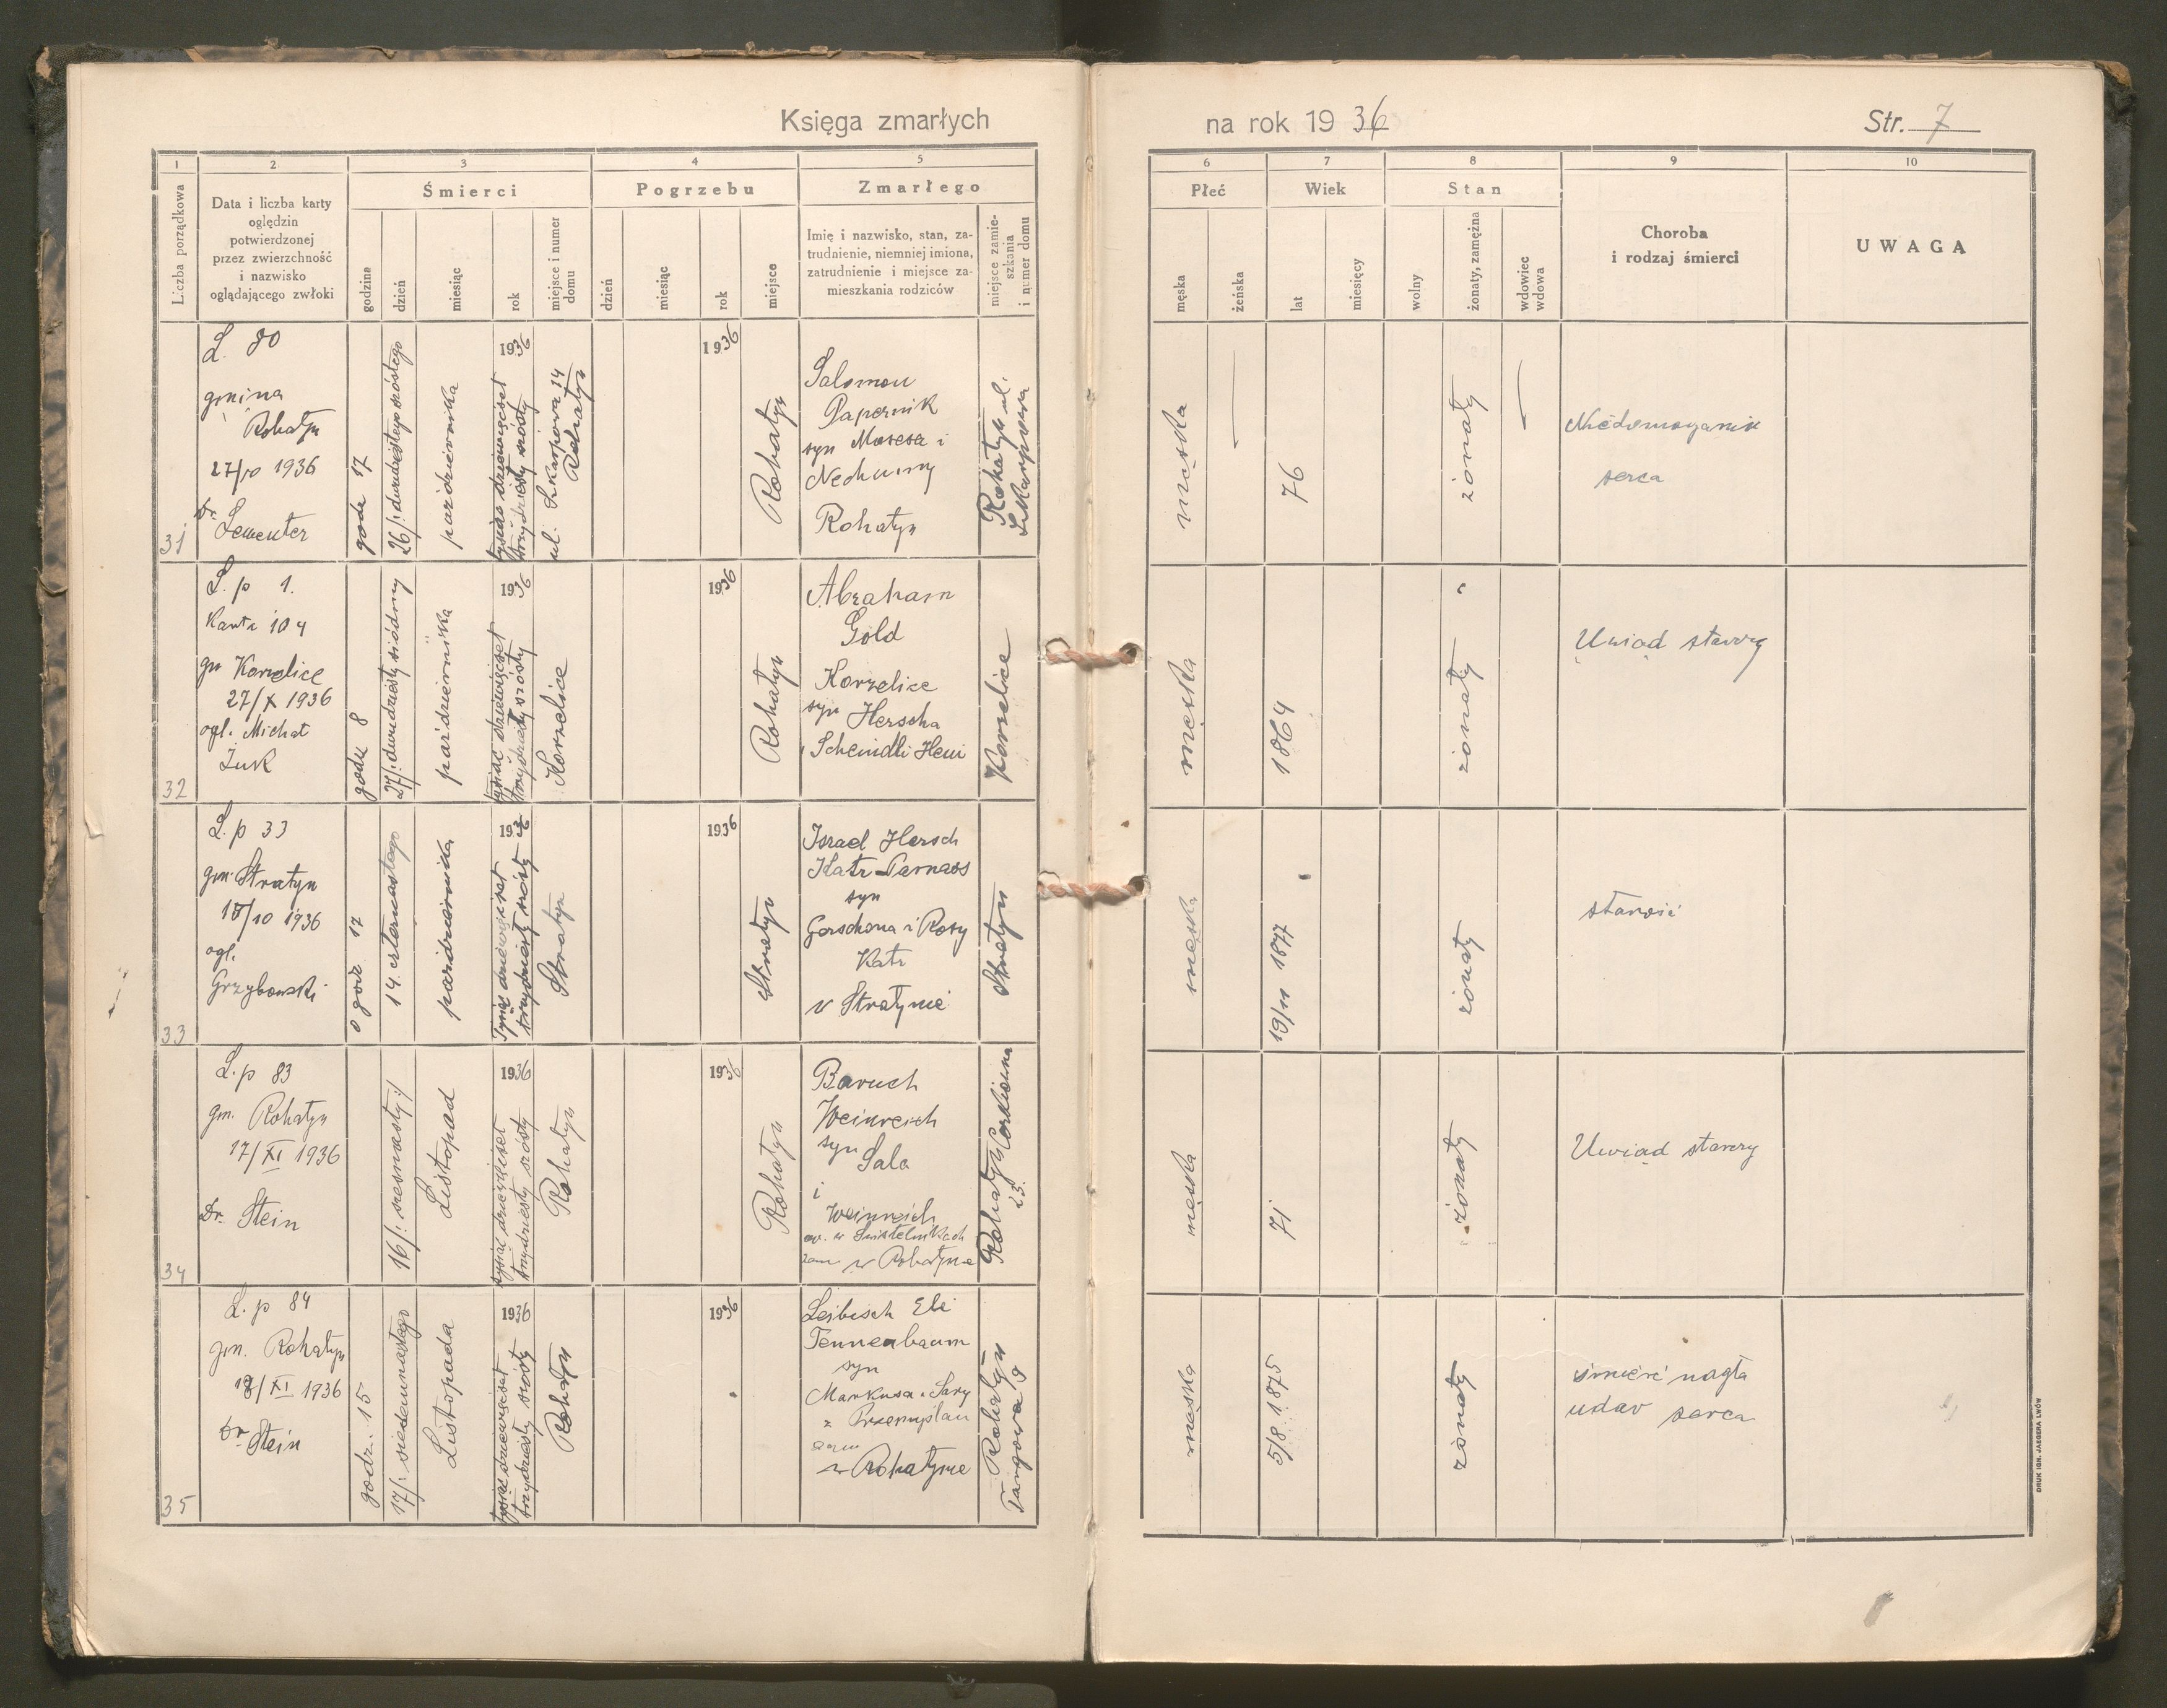 Księga zmarłych
na rok 19 36
Str. 7
1
2
3
4
5
6
7
8
9
10
Liczba porządkowa
Data i liczba karty
oględzin
potwierdzonej
przez zwierzchność
i nazwisko
oglądającego zwłoki
Śmierci
godzina
dzień
miesiąc
rok
miejsce i numer
domu
Pogrzebu
dzień
miesiąc
rok
miejsce
Zmarłego
Imię i nazwisko, stan, za-
trudnienie, niemniej imiona,
zatrudnienie i miejsce za-
mieszkania rodziców
miejsce zamie-
szkania
i numer domu
Płeć
męska
żeńska
Wiek
lat
miesięcy
Stan
wolny
żonaty, zamężna
wdowiec
wdowa
Choroba
i rodzaj śmierci
UWAGA
31
L. 80
gmina
Rohatyn
27/10 1936
Dr.
godz 17
26/: dwudziestego szóstego
października
1936
tysiąc dziewięćset
trzydziesty szósty
ul. Szkarpowa 14
Rohatyn
1936
Rohatyn
Salomon
Papernik
syn Mosesa i
Nechumy
Rohatyn
Rohatyn ul.
Szkarpowa
męska
76
żonaty
Niedomaganie
serca
32
L. p 1.
Karta 104
gm Korzelice
27/X 1936
ogl. Michał
Żuk
godz 8
27/: dwudziesty siódmy
października
1936
tysiąc dziewięćset
trzydziesty szósty
Korzelice
1936
Rohatyn
Abraham
Gold
Korzelice
syn Herscha
i Scheindli Heni
Korzelice
męska
1864
żonaty
Uwiąd starczy
33
L. p 33
gm. Stratyn
15/10 1936
ogl.
Grzybowski
o godz 17
14. czternastego
października
1936
Tysiąc dziewięćset
trzydziesty szósty
Stratyn
1936
Stratyn
Israel Hersch
Katz-Parnass
syn
Gerschona i Rosy
Katz
w Stratynie
Stratyn
męska
19/11 1877
żonaty
starość
34
L. p 83
gm. Rohatyn
17/XI 1936
Dr. Stein
16/: szesnasty:/
Listopad
1936
tysiąc dziewięćset
trzydziesty szósty
Rohatyn
1936
Rohatyn
Baruch
Weinreich
syn
Sala
i
Weinreich
ur. w Świstelnikach
zam. w Rohatynie
Rohatyn
23.
męska
71
żonaty
Uwiąd starczy
35
L. p 84
gm. Rohatyn
18/XI 1936
Dr Stein
godz. 15
17/: siedemnastego
Listopada
1936
tysiąc dziewięćset
trzydziesty szósty
Rohatyn
1936
Leibisch Eli
Tennenbaum
syn
Markusa i Sary
z Przemyślan
zam
w Rohatynie
Rohatyn
Targowa 9
męska
5/8 1875
żonaty
śmierć nagła
udar serca
DRUK IGN. JAEGERA LWÓW